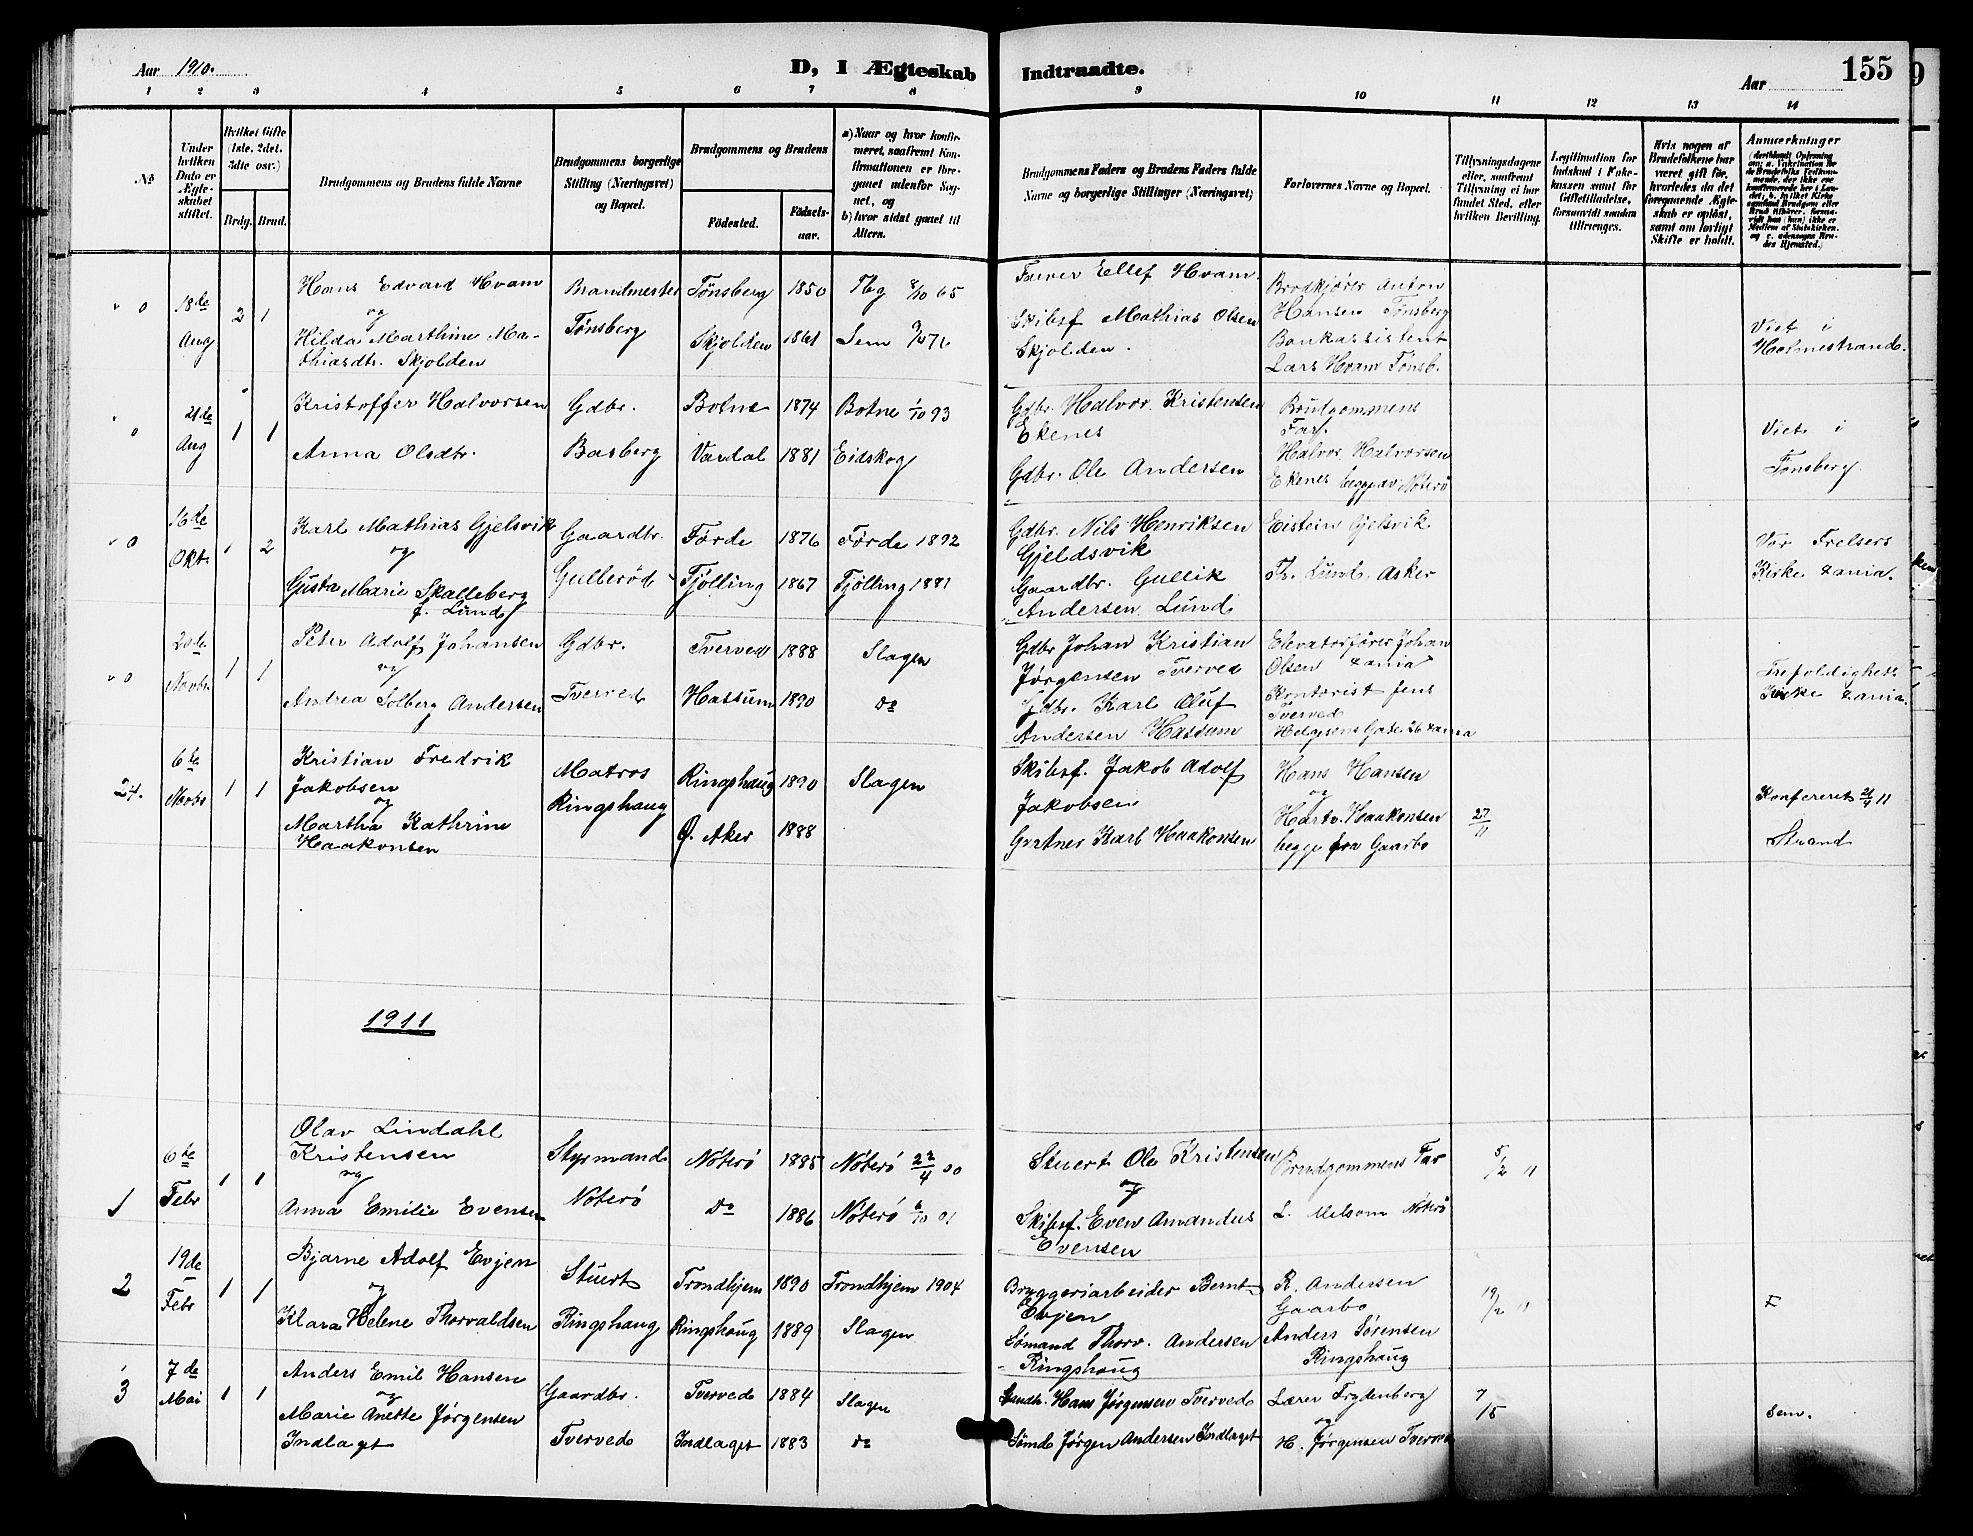 Aar 1910.
D, I Ægteskab
Indtraadte.
Aar
155
1 2 3 4 5 6 7 8 9 10 11 12 13 14
No
Under hvilken Dato er Ægteskabet stiftet.
Hvilket Gifte (1ste, 2det, 3dte osv.)
Brdg. Brud.
Brudgommens og Brudens fulde Navne
Brudgommens borgerlige Stilling (Næringsvei) og Bopæl.
Brudgommens og Brudens
Fødested.
Fødselsaar.
a) Naar og hvor konfirmeret, saafremt Konfirmationen er foregaaet udenfor Sognet, og
b) hvor sidst gaaet til Alters.
Brudgommens Faders og Brudens Faders fulde Navne og borgerlige Stillinger (Næringsvei)
Forlovernes Navne og Bopæl.
Tillysningsdagene eller, saafremt Tillysning ei har fundet Sted, efter hvilken Bevilling.
Legitimation for Indskud i Enkekassen samt for Giftetilladelse, forsaavidt saadan tiltrænges.
Hvis nogen af Brudefolkene har været gift før, hvorledes da det foregaaende Ægteskab er opløst, samt om lovligt Skifte er holdt.
Anmærkninger
" 0
18de Aug
2 1
Hans Edvard Hvam
og
Hilda Marthine Mathiasdtr. Skjolden
Brandmester
Tønsberg
Tønsberg 1850 Tbg 8/10 65
Skjolden 1861 Sem
Farver Ellef Hvam.
Skibsf Mathias Olsen
Skjolden.
Brodkjører Anton
Hansen Tønsberg
Bankassistent
Lars Hvam Tønsb.
Viet i
Holmestrand.
" 0
21de Aug
1 1
Kristoffer Halvorsen
Anna Olsdtr.
Gdbr.
Basberg
Botne 1874 Botne 1/10 93
Vardal 1881 Eidskog
Gdbr. Halvor Kristensen
Ekenes
Gdbr. Ole Andersen
Brudgommens
Far.
Halvor Halvorsen
Ekenes begge av Nøterø
Viet i
Tønsberg.
" 0
16de Okt.
1 2
Karl Mathias Gjelsvik
og
Gusta Marie Skalleberg
f. Lund
Gaardbr.
Gulleröd
Förde 1876 Förde 1892
Tjölling 1867 Tjölling 1881
Gdbr. Nils Henriksen
Gjeldsvik
Gaardbr. Gullik
Andersen Lund
Eistein Gjelsvik
Fr. Lund, Asker
Vor Frelsers
Kirke Xania.
" 0
20de Novbr.
1 1
Peter Adolf Johansen
og
Andrea Solberg Andersen
Gdbr.
Tverved
Tverved 1888 Slagen
Hassum 1890 do
Gdbr Johan Kristian
Jørgensen Tverved
Gdbr. Karl Oluf
Andersen Hassum
Elevatorfører Johan
Olsen Xania
Kontorist Jens
Tverved
Helgesens Gade 26 Xania
Trefoldigheds
Kirke Xania.
24.
6te
1 1
Kristian Fredrik
Jakobsen
og
Martha Kathrine
Haakonsen
Matros
Ringshaug
Ringshaug 1890 Slagen
Ø. Aker 1888
Skibsf. Jakob Adolf
Jakobsen
Gartner Karl Haakonsen
Hans Hansen
og
Hartv. Haakonsen
begge fra Gaarbo
27/11
Konfereret 21/4 11
Strand
1911
1
6te Febr
1 1
Olav Lindahl
Kristensen
og
Anna Emilie Evensen
Styrmand
Nøterö
Nøterö 1885 Nøterö 22/4 00
do 1886 Nøterö 6/10 01
Stuert Ole Kristensen
og
Skibsf. Even Amandus
Evensen
Brudgommens Far
L. Melsom Nøterö
5/2 11
2
19de Febr
1 1
Bjarne Adolf Evjen
og
Klara Helene Thorvaldsen
Stuert
Ringshaug
Trondhjem 1890 Trondhjem 1904
Ringshaug 1889 Slagen
Bryggeriarbeider Bernt
Evjen
Sømand Thorv. Andersen
Ringshaug
R. Andersen
Gaarbo
Anders Sörensen
Ringshaug
19/2 11
F
3
7de Mai
1 1
Anders Emil Hansen
og
Marie Anette Jørgensen
Indlaget
Gaardbr.
Tverved
Tverved 1884 Slagen
Indlaget 1883 do
Hans Jørgensen Tverved
Sømd Jørgen Andersen Indlaget
Lærer Frydenberg
og
H. Jørgensen Tverved
7/5
Sem.